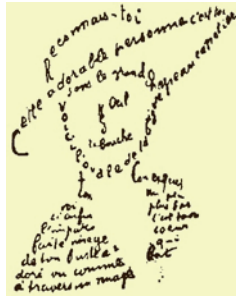 Reconnais-toi
Cette adorable personne c'est toi
sous le grand chapeau canotier
œil
la bouche
Voici l'ovale de ta figure
cou exquis
voi
ci enfin
l'impar
faite image
de ton buste a
doré vu comme
à travers un nuage
un peu
plus bas
c'est ton
coeur
qui
bat